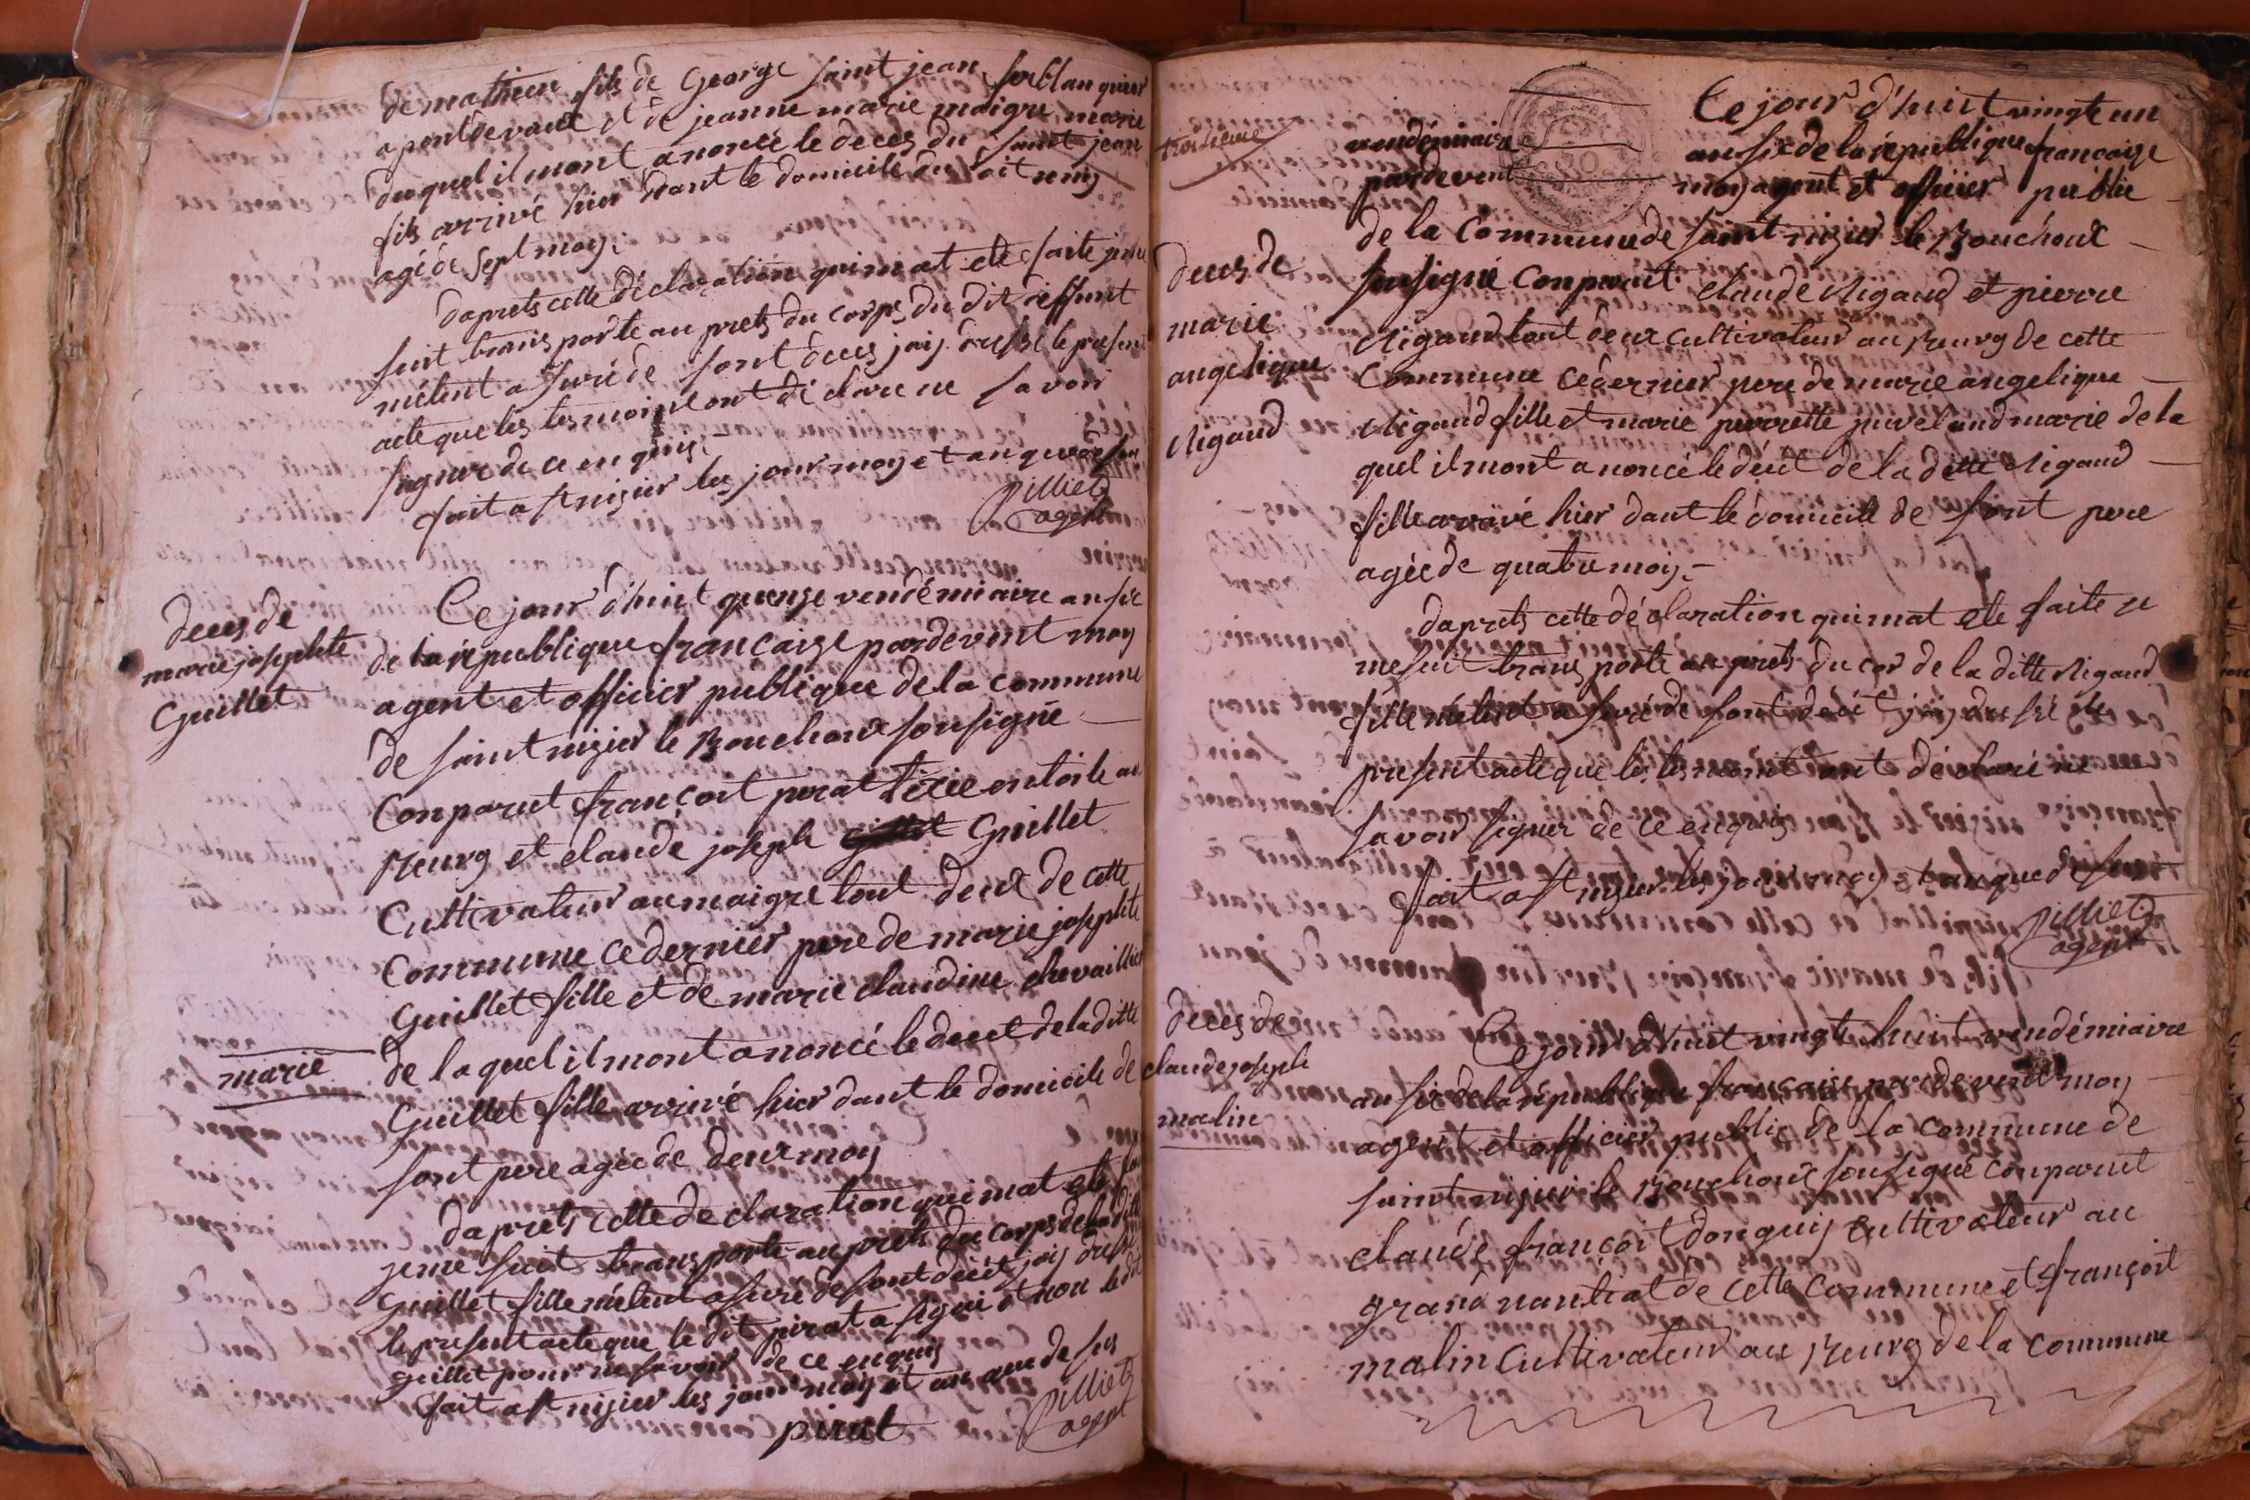 de mathieu fils de George saint jean ferblanquier
a pont de vaux et de jeanne marie maigre marie
duquel il mont anoncé le deces du saint jean
fils arrivé hier dant le domicile du
agé de sept moy
daprets cette déclaration quimat ete faite
suit trans porté au prets du corps du dit deffunt
métent asuré de sont deces jaiy dressé le present
acte que les tesmoint ont déclaré ne savoir
signer de ce enquis
fait a st nizier les jour moy et an que desus
pilliet
agent
deces de
marie josephte
Guillet
Ce jour d'huit quenze vendémiaire an six
de la république francaize pardevent moy
agent et officier publique de la commune
de saint nizier le Bouchoux sousigné
Conparut francoit perat tixie en toile au
Bourg et claude joseph Guillet
Cultivateur au maigre tout deux de cette
Commune ce dernier pere de marie josephte
Guillet fille et de marie claudine chevaillier
marie
de laquel il mont anoncé le decet de la ditte
Guillet fille arrivé hier dant le domicile de
sont pere agée de deux moy
daprets cette declaration quimat ete
jeme suit trans porté au prets du corps de la ditte
Guillet fille métent asuré de sont décet jaiy dressé
le present acte que le dit perat a signé et non le dit
guillet pour ne savoir de ce enquis
fait a st nizier les jour moy et an que desus
perat
pilliet
agent
troisieme
Ce jour d'huit vingt un
vendémiaire an six de la république francaize
pardevent moy agent et officier public
de la Commune de saint nizier le Bouchoux
sousigné Conparut claude Migaud et pierre
Migaud tout deux Cultivateur au Bourg de cette
Commune ce dernier pere de marie angelique
Migaud fille et marie perrette marie de la
quel il mont anoncé le décet de la ditte Migaud
fille arrivé hier dant le domicile de sont pere
agée de quatre moy
deces de
marie
angelique
Migaud
daprets cette déclaration quimat ete faite je
me suit trans porté au prets du cor de la ditte Migaud
fille métent asuré de sont decet jaiy dressé le
present acte que les tesmoint ont déclaré ne
savoir signer de ce enquis
fait a st nizier les jour moy et an que desus
pilliet
agent
deces de
claude joseph
malin
Ce jour d'huit vingte huit vendémiaire
an six de la république francaize pardevent moy
agent et officier public de la commune de
saint nizier le Bouchoux sousigné conparut
claude francoit donguiy cultivateur au
grand nantiat de cette commune et françoit
malin Cultivateur au Bourg de la commune